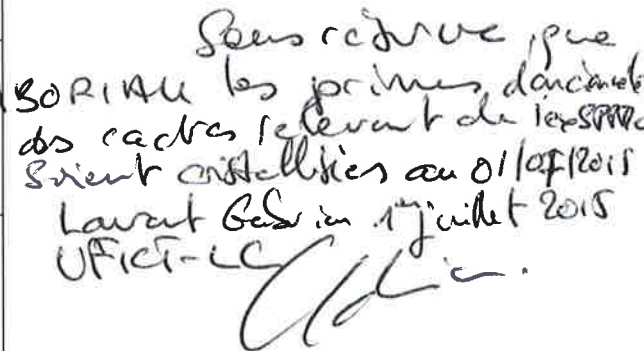 Sous réserve que
les primes d'ancienneté
des cadres relevant de l'ex
Soient cristallisées au 01/07/2015
Laurent 1er juillet 2015
UFICT-LC